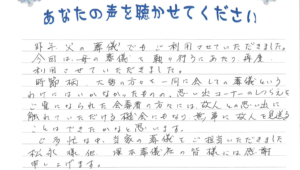 あなたの声を聴かせてください
昨年父の葬儀でもご利用させていただきました。
今回は母の葬儀を執り行うにあたり再度
利用させていただきました。
時節柄、大勢の方と一同に会しての葬儀という
わけにはいかなかったものの、思い出コーナーのしつらえを
ご覧になられた会葬者の方々には、故人との思い出に
触れていただける機会にもなり無事に故人を見送る
ことはできたかなと思います。
ご多忙な中、当家の葬儀をご担当いただきました
松永様他、葬儀社の皆様には感謝
申し上げます。